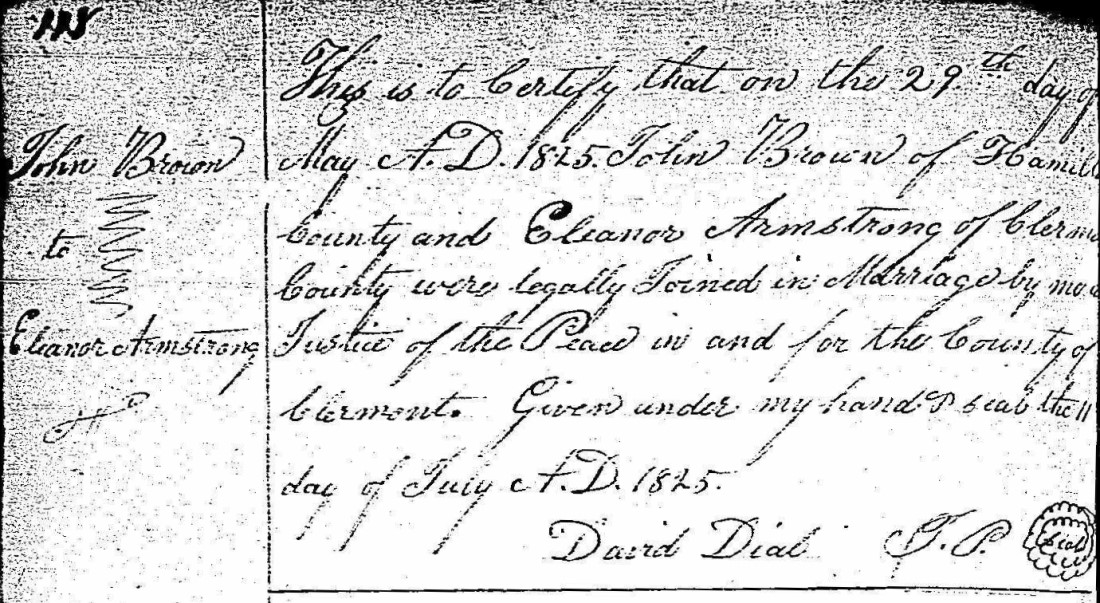 118
John Brown
to
Eleanor Armstrong
This is to Certify that on the 29.th day of
May A.D. 1825. John Brown of Hamil
County and Eleanor Armstrong of Clerm
County were legally Joined in Marriage by me a
Justice of the Peace in and for the County of
Clermont. Given under my hand & seal the 11
day of July A.D. 1825.
David Dial J.P. seal